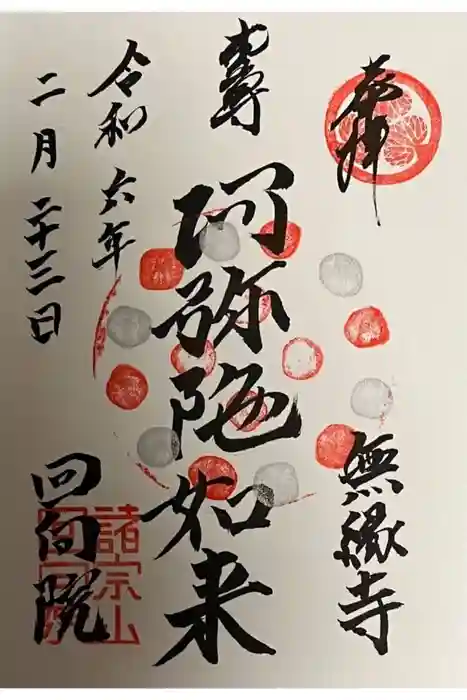 奉拝
無縁寺
本尊
阿弥陀如来
令和六年
二月二十三日
回向院
諸宗山